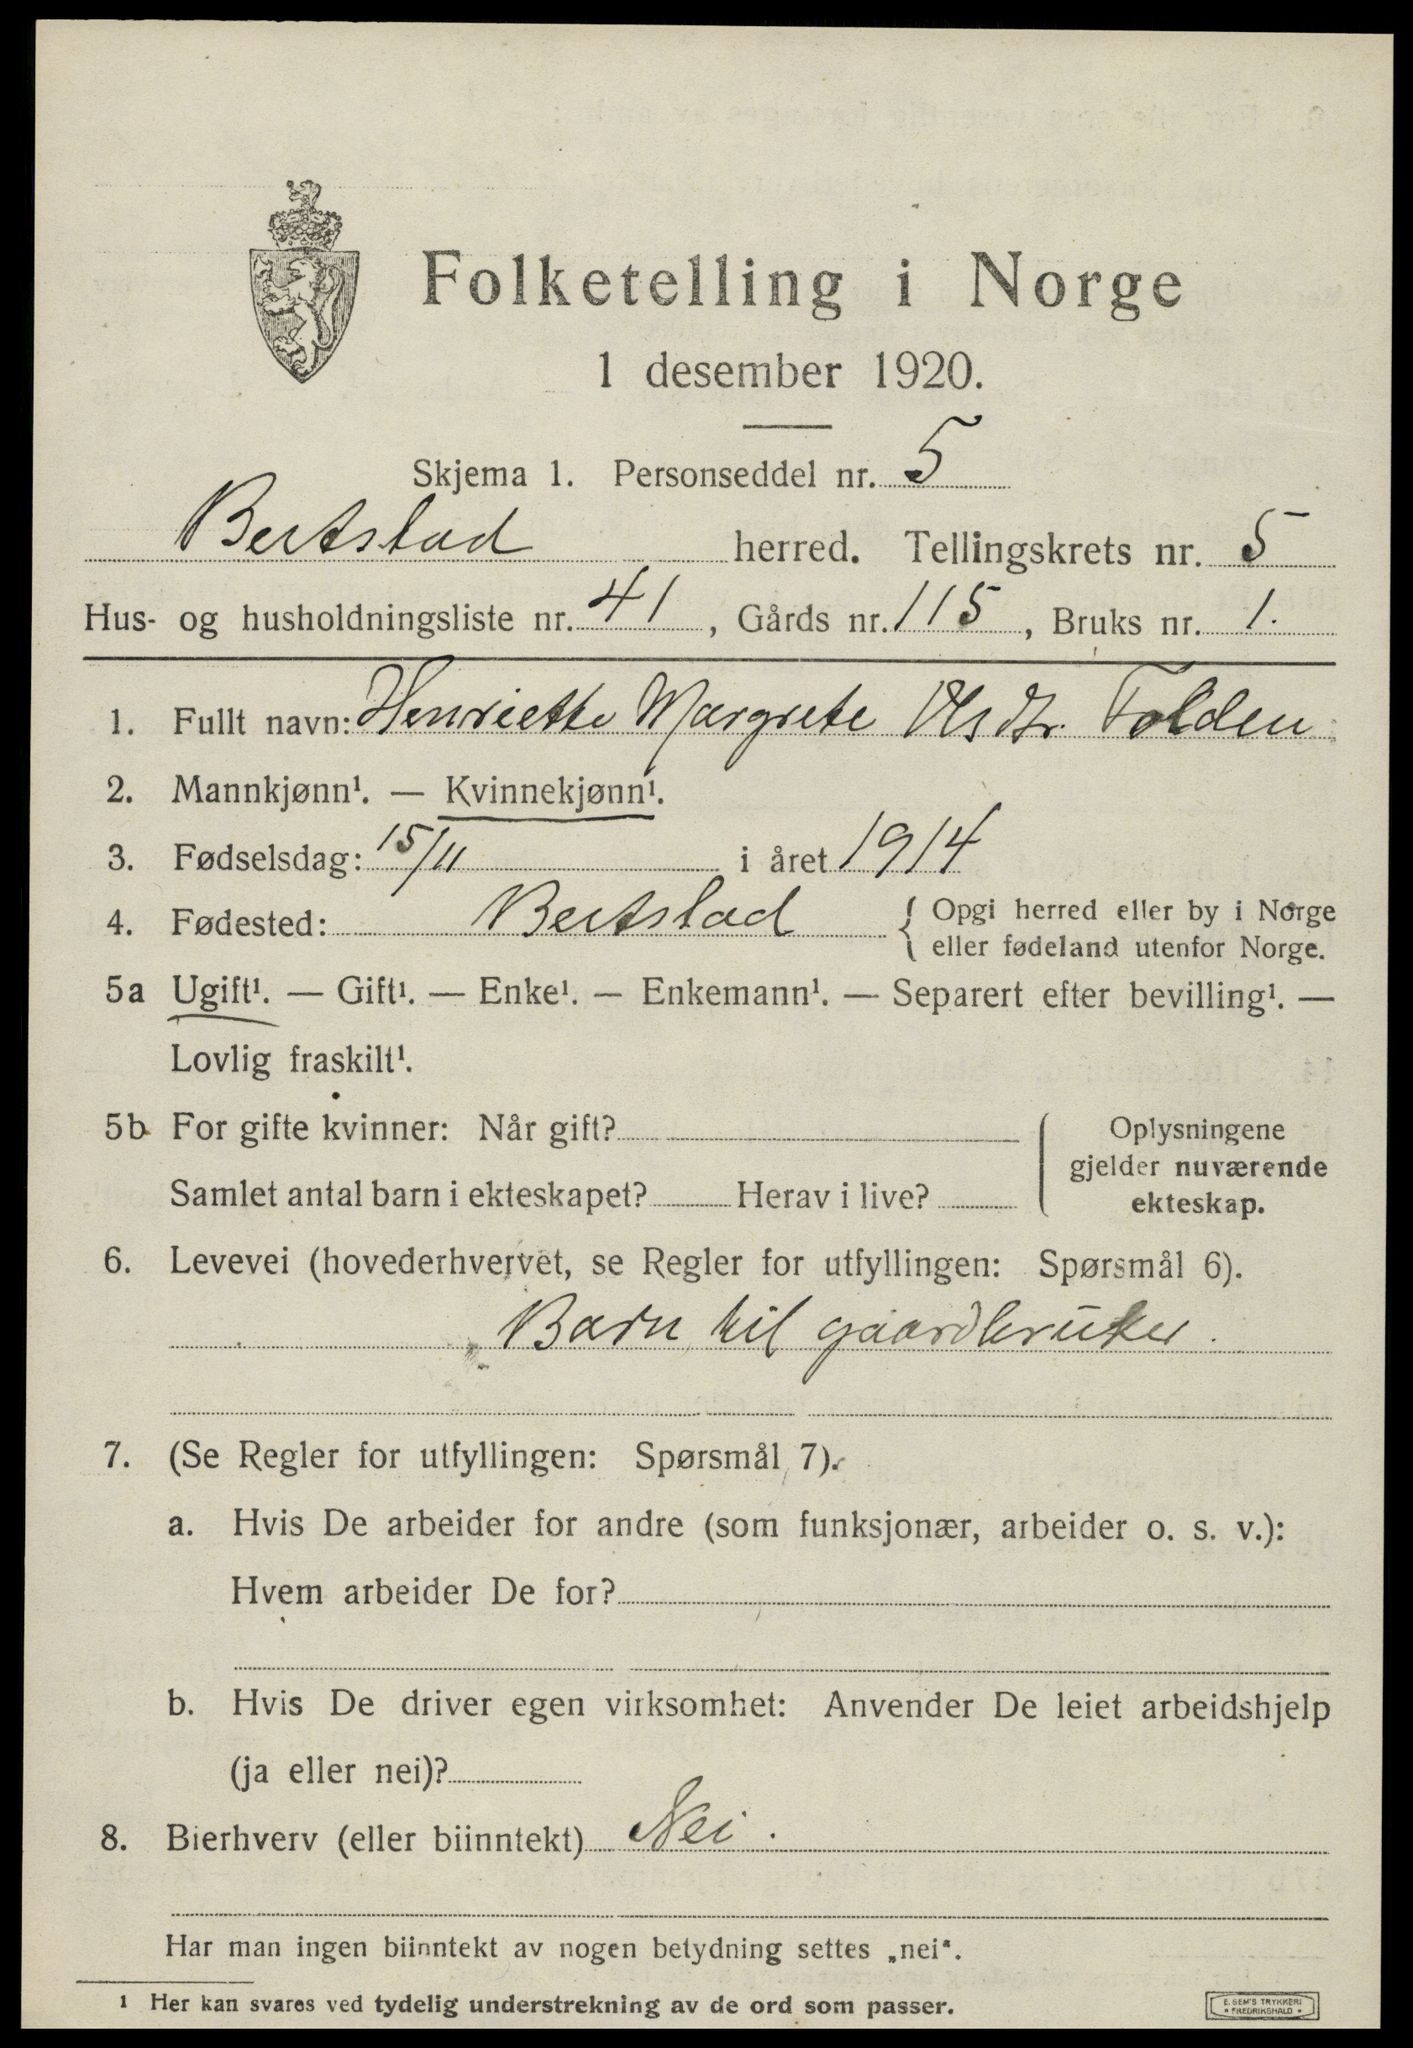 Folketelling i Norge
1 desember 1920.
Skjema 1. Personseddel nr. 5
Beitstad herred. Tellingskrets nr. 5
Hus- og husholdningsliste nr. 41, Gårds nr. 115, Bruks nr. 1.
1. Fullt navn: Henriette Margrete Olsdtr. Folden
2. Mannkjønn¹. — Kvinnekjønn¹.
3. Fødselsdag: 15/11 i året 1914
4. Fødested: Beitstad { Opgi herred eller by i Norge
eller fødeland utenfor Norge.
5a Ugift¹. — Gift¹. — Enke¹. — Enkemann¹. — Separert efter bevilling¹. —
Lovlig fraskilt¹.
5b For gifte kvinner: Når gift? Oplysningene
gjelder nuværende
Samlet antal barn i ekteskapet? Herav i live? ekteskap.
6. Levevei (hovederhvervet, se Regler for utfyllingen: Spørsmål 6).
Barn til gaardbruker.
7. (Se Regler for utfyllingen: Spørsmål 7).
a. Hvis De arbeider for andre (som funksjonær, arbeider o. s. v.):
Hvem arbeider De for?
b. Hvis De driver egen virksomhet: Anvender De leiet arbeidshjelp
(ja eller nei)?
8. Bierhverv (eller biinntekt) Nei.
Har man ingen biinntekt av nogen betydning settes „nei“.
1 Her kan svares ved tydelig understrekning av de ord som passer.
E. SEM'S TRYKKERI
• FREDRIKSHALD •